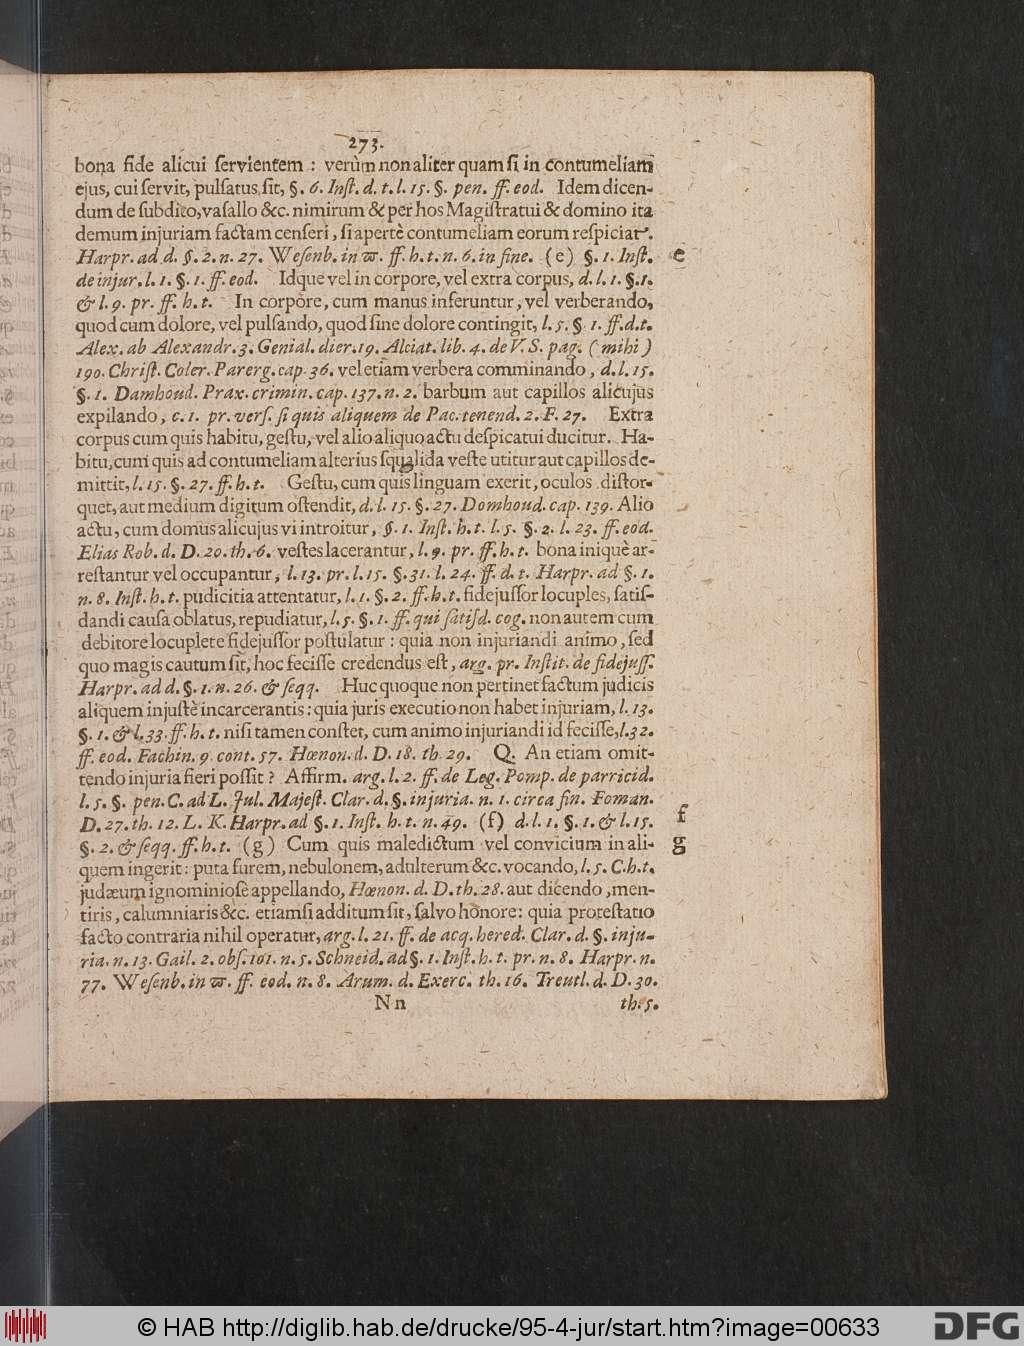 273.
bona fide alicui servientem : verùm non aliter quam si in contumeliam
ejus, cui servit, pulsatus sit, §. 6. Inst. d. t. l. 15. §. pen. ff. eod. Idem dicen-
dum de subdito, vasallo &c. nimirum & per hos Magistratui & domino ita
demum injuriam factam censeri, si apertè contumeliam eorum respiciat.
Harpr. ad d. §. 2. n. 27. Wesenb. in ϖ. ff. h. t. n. 6. in fine. (e) §. 1. Inst.
e
de injur. l. 1. §. 1. ff. eod. Idque vel in corpore, vel extra corpus, d. l. 1. §. 1.
& l. 9. pr. ff. h. t. In corpore, cum manus inferuntur, vel verberando,
quod cum dolore, vel pulsando, quod sine dolore contingit, l. 5. §. 1. ff. d. t.
Alex. ab Alexandr. 3. Genial. dier. 19. Alciat. lib. 4. de V. S. pag. (mihi)
190. Christ. Coler. Parerg. cap. 36. vel etiam verbera comminando, d. l. 15.
§. 1. Damhoud. Prax. crimin. cap. 137. n. 2. barbum aut capillos alicujus
expilando, c. 1. pr. vers. si quis aliquem de Pac. tenend. 2. F. 27. Extra
corpus cum quis habitu, gestu, vel alio aliquo actu despicatui ducitur. Ha-
bitu, cum quis ad contumeliam alterius squalida veste utitur aut capillos de-
mittit, l. 15. §. 27. ff. h. t. Gestu, cum quis linguam exerit, oculos distor-
quet, aut medium digitum ostendit, d. l. 15. §. 27. Domhoud. cap. 139. Alio
actu, cum domus alicujus vi introitur, §. 1. Inst. h. t. l. 5. §. 2. l. 23. ff. eod.
Elias Rob. d. D. 20. th. 6. vestes lacerantur, l. 9. pr. ff. h. t. bona iniquè ar-
restantur vel occupantur, l. 13. pr. l. 15. §. 31. l. 24. ff. d. t. Harpr. ad §. 1.
n. 8. Inst. h. t. pudicitia attentatur, l. 1. §. 2. ff. h. t. fidejussor locuples, satis-
dandi causa oblatus, repudiatur, l. 5. §. 1. ff. qui satisd. cog. non autem cum
debitore locuplete fidejussor postulatur : quia non injuriandi animo, sed
quo magis cautum sit, hoc fecisse credendus est, arg. pr. Instit. de fidejuss.
Harpr. ad d. §. 1. n. 26. & seqq. Huc quoque non pertinet factum judicis
aliquem injustè incarcerantis : quia juris executio non habet injuriam, l. 13.
§. 1. & l. 33. ff. h. t. nisi tamen constet, cum animo injuriandi id fecisse, l. 32.
ff. eod. Fachin. 9. cont. 57. Hœnon. d. D. 18. th. 29. Q. An etiam omit-
tendo injuria fieri possit ? Affirm. arg. l. 2. ff. de Leg. Pomp. de parricid.
l. 5. §. pen. C. ad L. Jul. Majest. Clar. d. §. injuria. n. 1. circa fin. Foman.
D. 27. th. 12. L. K. Harpr. ad §. 1. Inst. h. t. n. 49. (f) d. l. 1. §. 1. & l. 15.
f
§. 2. & seqq. ff. h. t. (g) Cum quis maledictum vel convicium in ali-
g
quem ingerit : puta furem, nebulonem, adulterum &c. vocando, l. 5. C. h. t.
judæum ignominiosè appellando, Hœnon. d. D. th. 28. aut dicendo, men-
tiris, calumniaris &c. etiamsi additum sit, salvo honore : quia protestatio
facto contraria nihil operatur, arg. l. 21. ff. de acq. hered. Clar. d. §. inju-
ria. n. 13. Gail. 2. obs. 101. n. 5. Schneid. ad §. 1. Inst. h. t. pr. n. 8. Harpr. n.
77. Wesenb. in ϖ. ff. eod. n. 8. Arum. d. Exerc. th. 16. Treutl. d. D. 30.
N n th. 5.
© HAB http://diglib.hab.de/drucke/95-4-jur/start.htm?image=00633
DFG